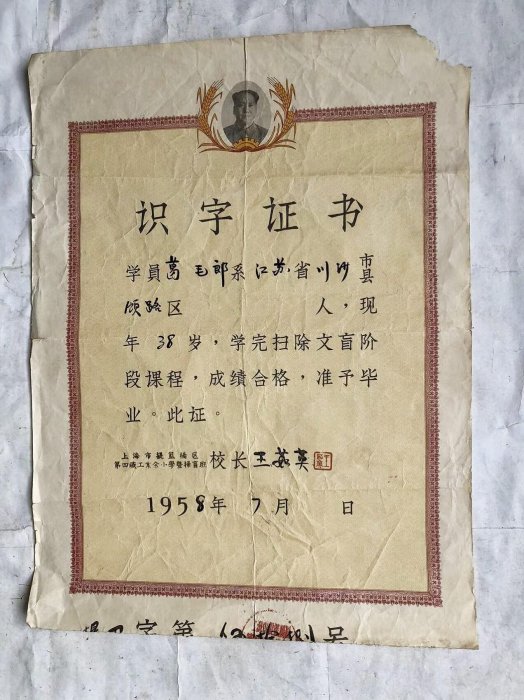 识字证书
学員葛毛郎系江苏省川沙市县
顾路区 人，现
年38岁，学完扫除文盲阶
段课程，成绩合格，准予毕
业。此证。
上海市提籃橋区
第四職工業余小學暨掃盲班
校长王菽英
1958年7月 日
字第